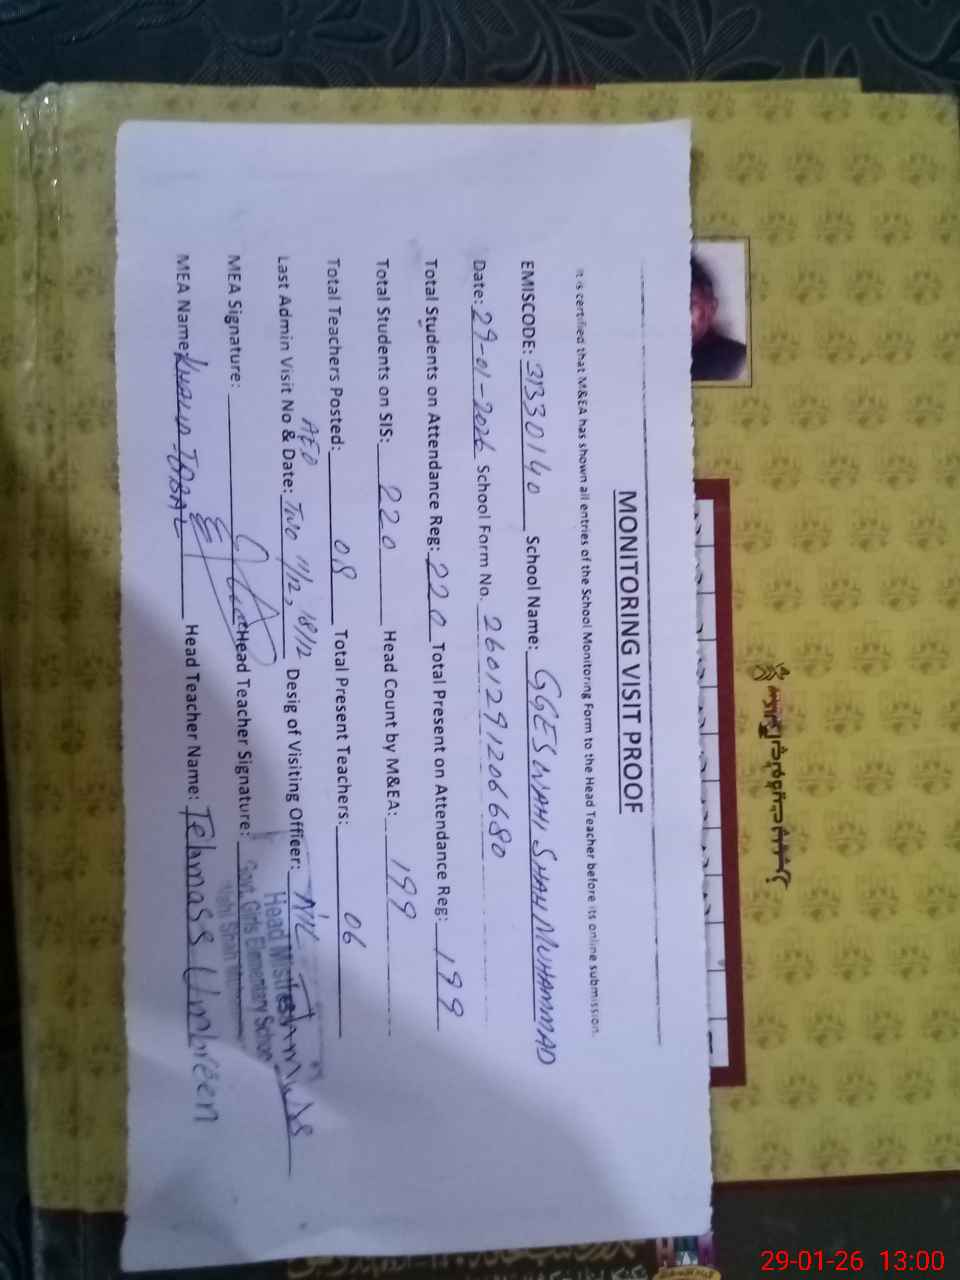 MONITORING VISIT PROOF
It is certified that M&EA has shown all entries of the School Monitoring Form to the Head Teacher before its online submission.
EMISCODE: 31330140 School Name: GGES WAHI SHAH MUHAMMAD
Date: 29-01-2026 School Form No. 260129120 6680
Total Students on Attendance Reg: 220 Total Present on Attendance Reg: 199
Total Students on SIS: 220 Head Count by M&EA: 199
Total Teachers Posted: 08 Total Present Teachers: 06
AEO
Last Admin Visit No & Date: Two 11/12, 18/12 Desig of Visiting Officer: NIL
MEA Signature: Head Teacher Signature: Tehmass
Head Mistress
Govt. Girls Elementary School
Wahi Shah
MEA Name: KHALID IQBAL Head Teacher Name: Tehmass Umbreen
29-01-26 13:00